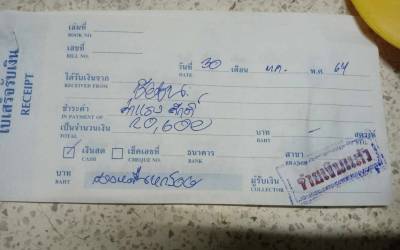 ใบเสร็จรับเงิน
RECEIPT
เล่มที่
BOOK NO.
เลขที่
BILL NO.
วันที่ 30 เดือน ม.ค. พ.ศ. 64
DATE
ได้รับเงินจาก
RECEIVED FROM
ชำระค่า ค่าแรง
IN PAYMENT OF
เป็นจำนวนเงิน 20,600 บาท - สตางค์
TOTAL BAHT STG.
✓ เงินสด เช็คเลขที่ ธนาคาร สาขา
CASH CHEQUE NO. BANK BRANCH
จ่ายเงินแล้ว
บาท สองหมื่นหกร้อย ผู้รับเงิน
BAHT COLLECTOR